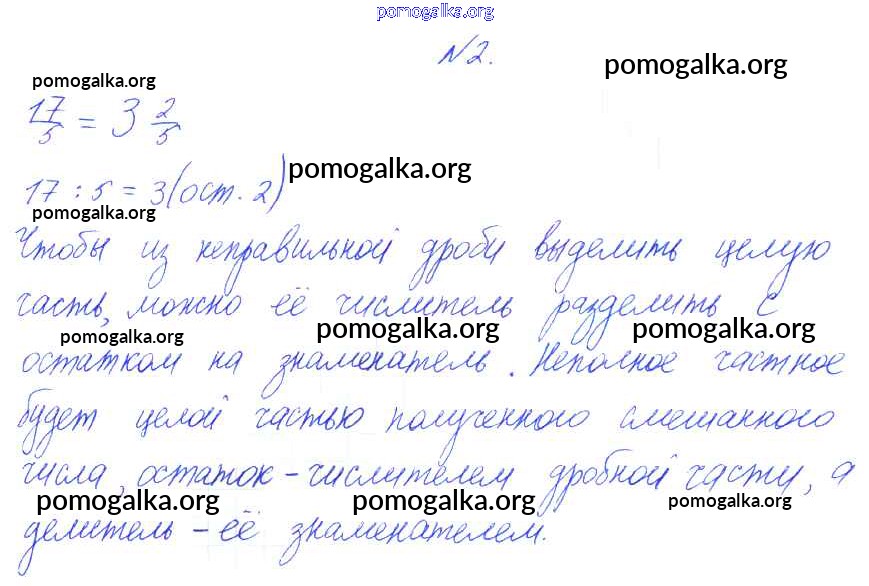 pomogalka.org
№2.
pomogalka.org
pomogalka.org
17/5 = 3 2/5
pomogalka.org
17 : 5 = 3 (ост. 2)
pomogalka.org
Чтобы из неправильной дроби выделить целую
часть, можно её числитель разделить с
pomogalka.org pomogalka.org pomogalka.org
остатком на знаменатель. Неполное частное
будет целой частью полученного смешанного
числа, остаток – числителем дробной части, а
pomogalka.org pomogalka.org pomogalka.org
делитель – её знаменателем.